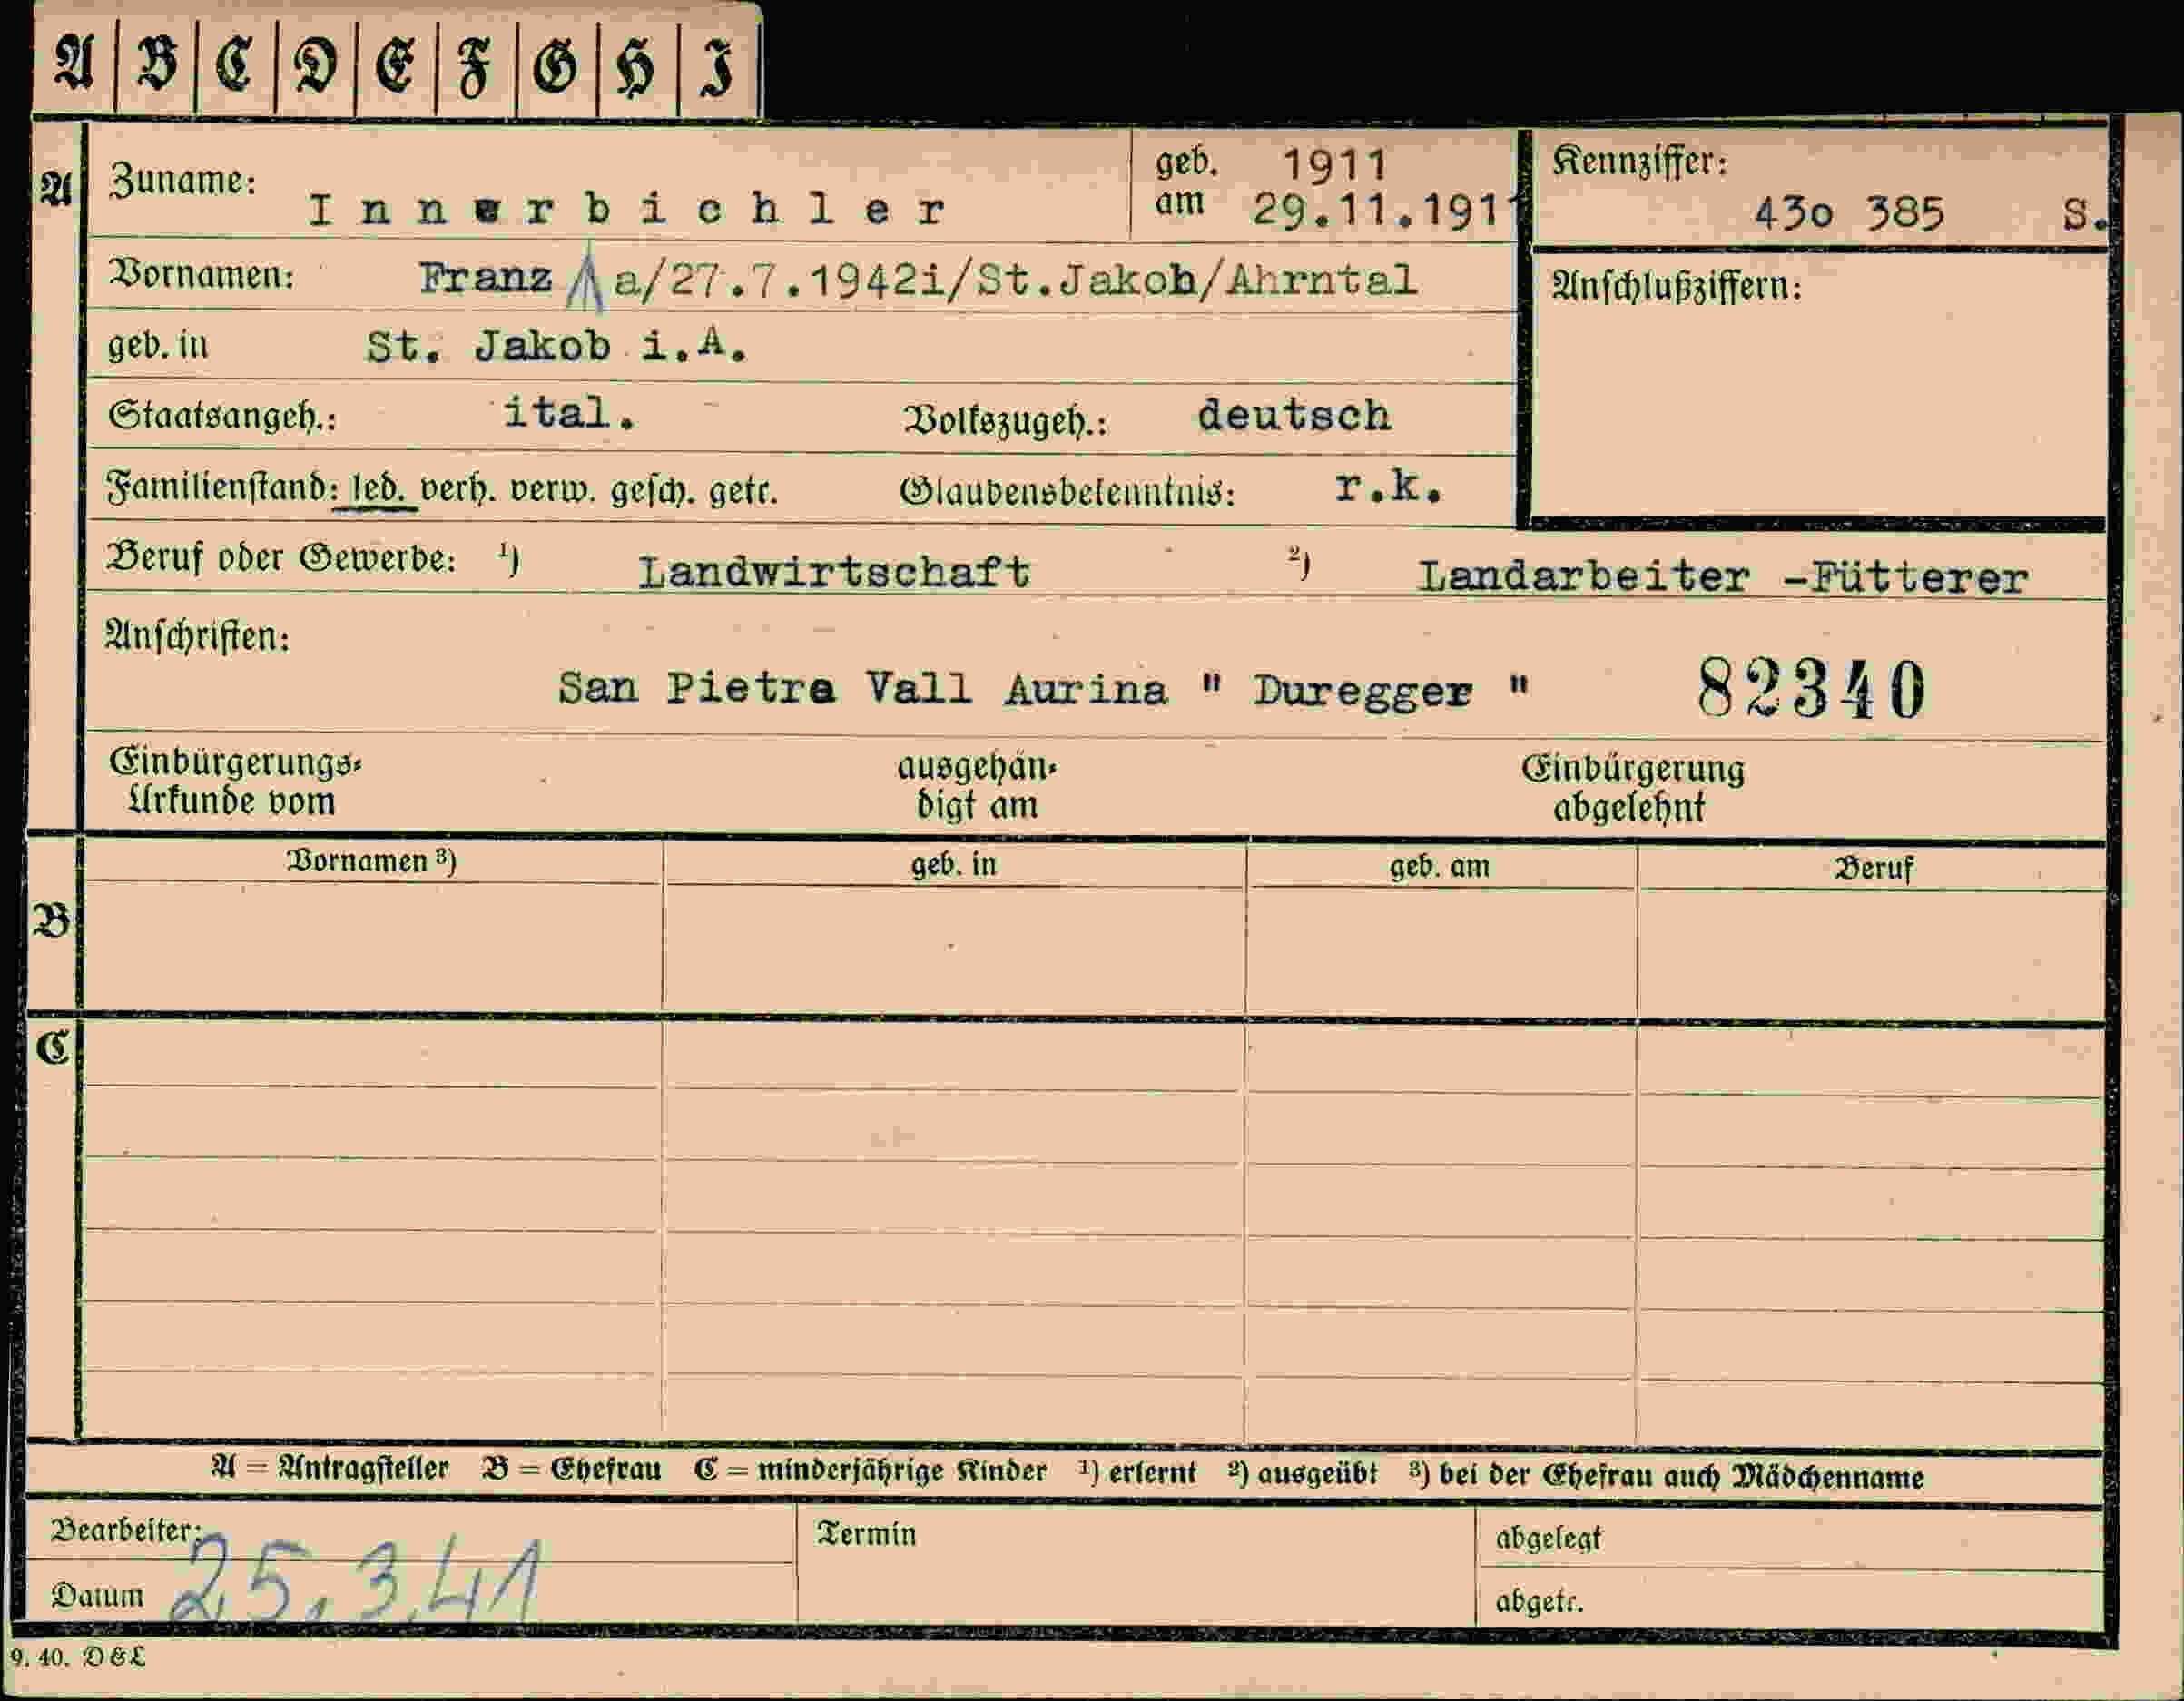 A B C D E F G H I
A Zuname: Innerbichler geb. am 1911 29.11.1911 Kennziffer: 43o 385 S.
Vornamen: Franz a/27.7.1942i/St.Jakob/Ahrntal Anschlußziffern:
geb. in St. Jakob i.A.
Staatsangeh.: ital. Volkszugeh.: deutsch
Familienstand: led. verh. verw. gesch. getr. Glaubensbekenntnis: r.k.
Beruf oder Gewerbe: 1) Landwirtschaft 2) Landarbeiter -Fütterer
Anschriften:
San Pietra Vall Aurina " Duregger " 82340
Einbürgerungs- ausgehän- Einbürgerung
Urkunde vom digt am abgelehnt
Vornamen 3) geb. in geb. am Beruf
B
C
A = Antragsteller B = Ehefrau C = minderjährige Kinder 1) erlernt 2) ausgeübt 3) bei der Ehefrau auch Mädchenname
Bearbeiter: Termin abgelegt
Datum 25.3.41 abgetr.
9. 40. D & L